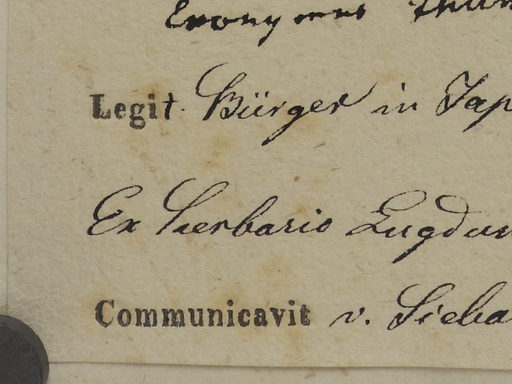 Evonymus Thun
Legit Bürger in Jap
Ex Herbario Lugdun
Communicavit v. Siebo